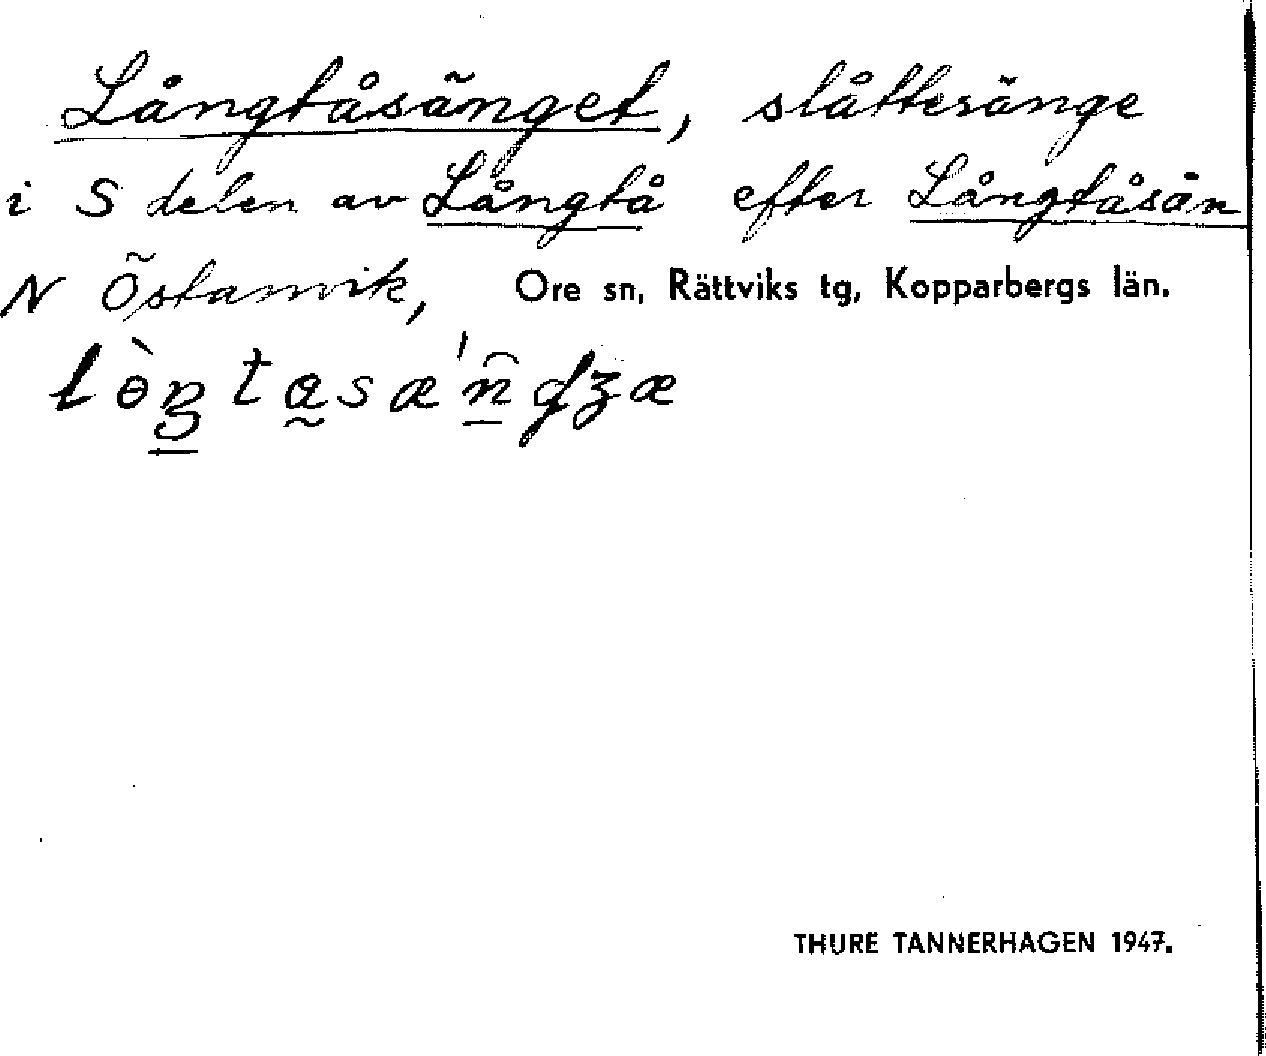 Långtåsänget, slåttesänge
i S delen av Långtå efter Långtåsån
N Östanvik, Ore sn, Rättviks tg, Kopparbergs län.
THURE TANNERHAGEN 1947.